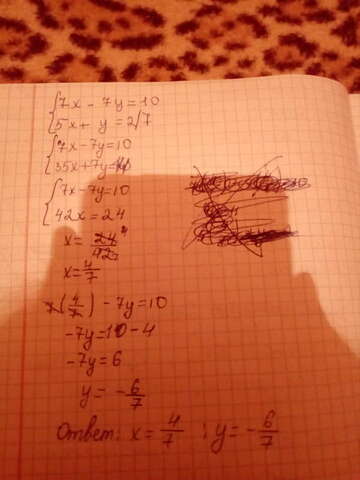 7x - 7y = 10
5x + y = 2|7
7x - 7y = 10
35x + 7y =
7x - 7y = 10
42x = 24
x = 24/42
x = 4/7
7(4/7) - 7y = 10
-7y = 10 - 4
-7y = 6
y = -6/7
Ответ: x = 4/7 ; y = -6/7